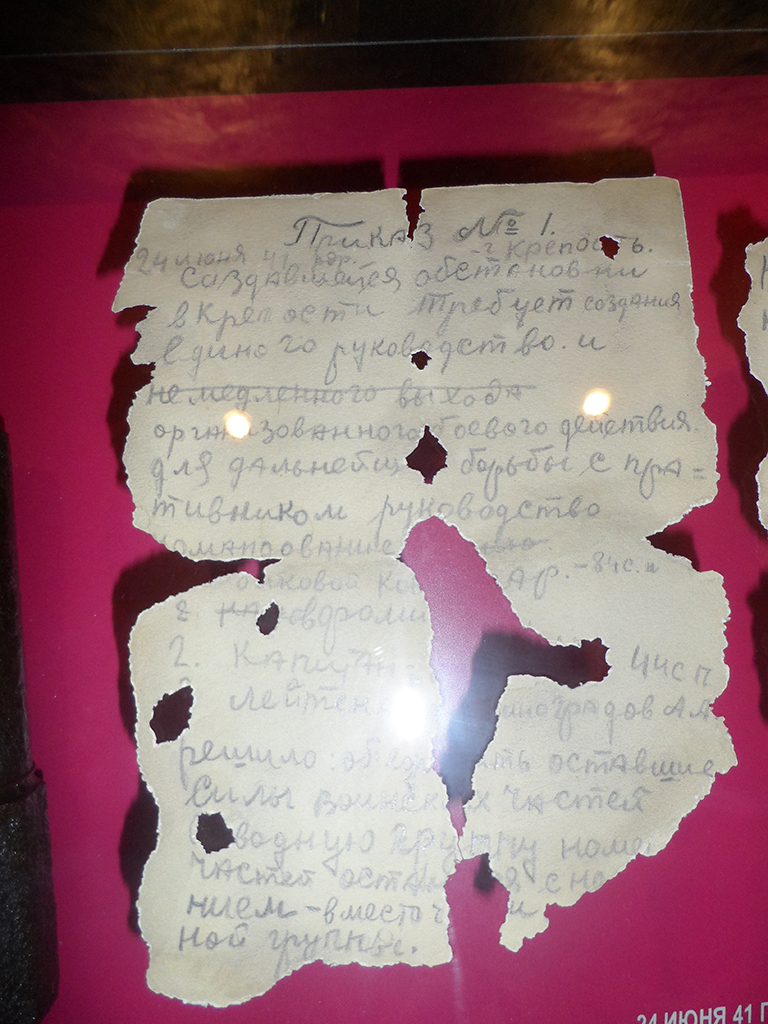 Приказ № 1.
24 июня 41 г. Крепость.
Создавшаяся обстановки
в крепости требует создания
единого руководство. и
немедленного выхода
организованного боевого действия.
для дальнейш борьбы с пра=
тивником руководство
84 с.п
2. Капитан 44 с п
Лейтен иноградов А
решило: об ть оставшие
силы воинских частей
водную группу номе
частей оста я с но
нием - вместо
ной группы.
24 ИЮНЯ 41